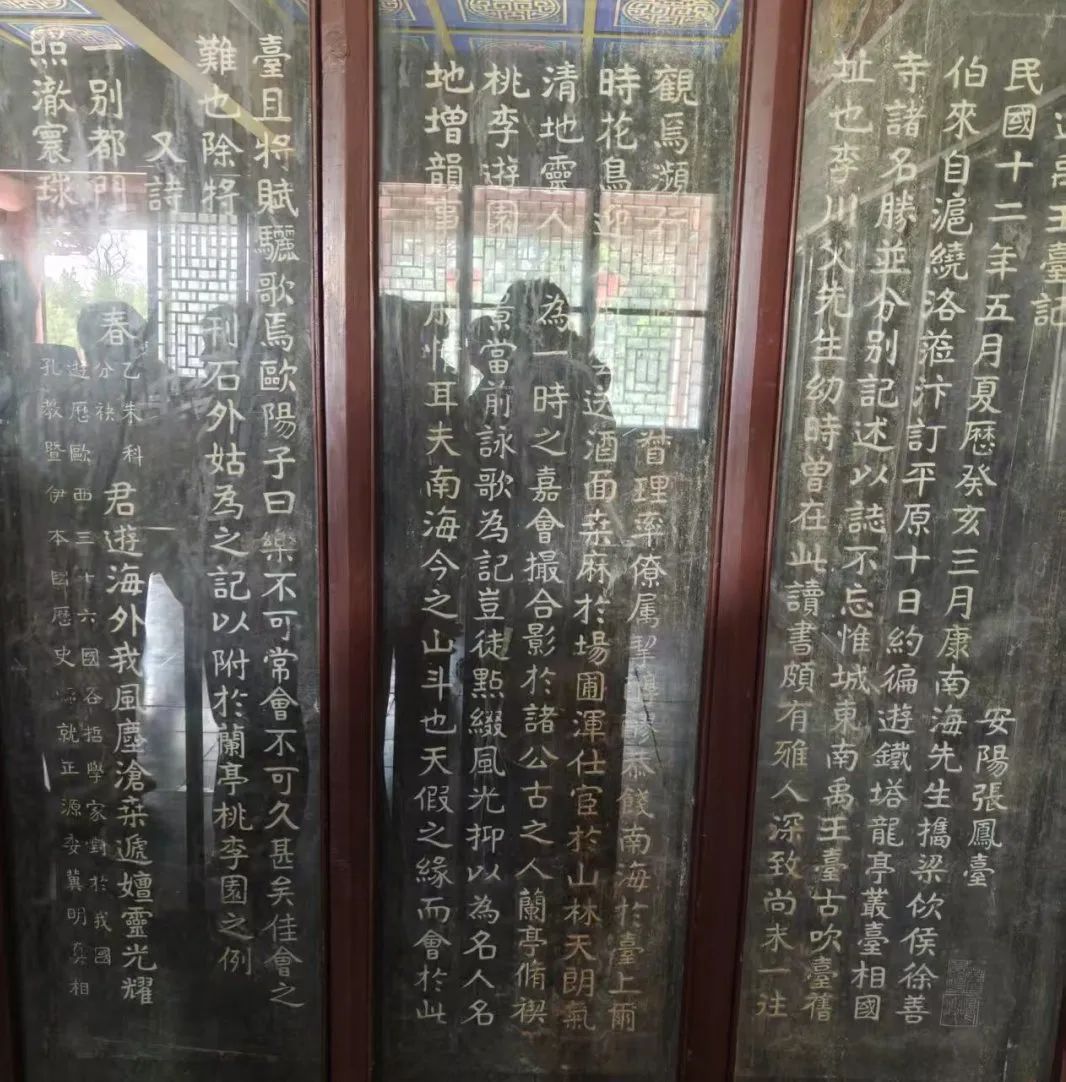 遊禹王臺記
安陽張鳳臺
民國十二年五月夏厯癸亥三月康南海先生攜梁佽侯徐善
伯來自滬繞洛蒞汴訂平原十日約徧遊鐵塔龍亭叢臺相國
寺諸名勝並分别記述以誌不忘惟城東南禹王臺古吹臺舊
址也李川父先生幼時曾在此讀書頗有雅人深致尚未一往
觀焉瀕行 督理率僚属 恭餞南海於臺上爾
時花鳥迎 送酒面桒麻於場圃渾仕宦於山林天朗氣
清地靈人 為一時之嘉會撮合影於諸公古之人蘭亭脩禊
桃李遊園 景當前詠歌為記豈徒點綴風光抑以為名人名
地增韻事 情耳夫南海今之山斗也天假之緣而會於此
臺且將賦驪歌焉歐陽子曰樂不可常會不可久甚矣佳會之
難也除將 刊石外姑為之記以附於蘭亭桃李園之例
又詩
一别都門 春 乙未科分袂 君遊海外我風塵滄桒遞嬗靈光耀
照澈寰球 遊厯歐西三十六國各哲學家對於我國
孔教暨伊本國厯史 就正源委冀明真相